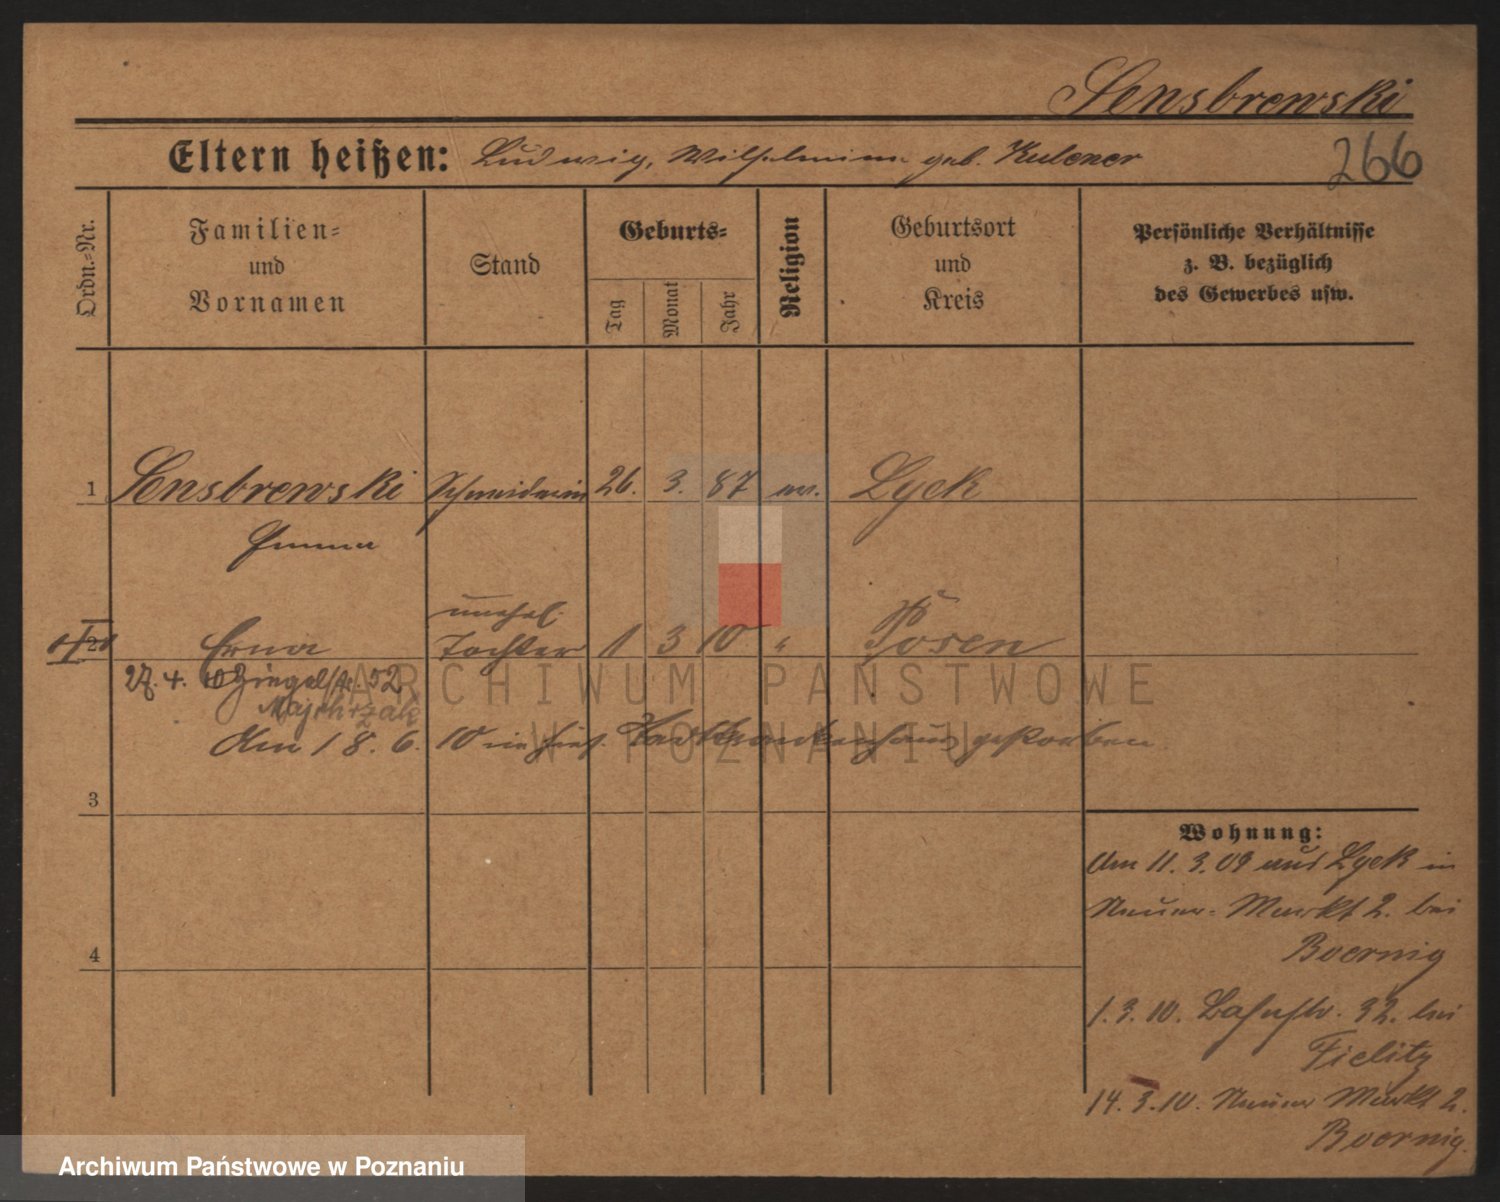 Sensbrowski
Eltern heißen: Ludwig, Wilhelmine geb. Kulener
266
Ordn.-Nr.
Familien-
und
Vornamen
Stand
Geburts-
Tag
Monat
Jahr
Religion
Geburtsort
und
Kreis
Persönliche Verhältnisse
z. B. bezüglich
des Gewerbes usw.
1 Sensbrowski Schneiderin 26. 3. 87 ev. Lyck
Emma
unehel.
2 Erna Tochter 1 3 10 " Posen
27. 4. 10 Ziegelstr. 52
Majchrzak
Am 18. 6. 10 im hies. Stadtkrankenhaus gestorben
3
4
Wohnung:
Am 11. 3. 09 aus Lyck in
Neuer-Markt 2. bei
Boernig
1. 3. 10. Bahnstr. 32. bei
Fielitz
14. 3. 10. Neuer Markt 2.
Boernig.
ARCHIWUM PAŃSTWOWE
W POZNANIU
Archiwum Państwowe w Poznaniu